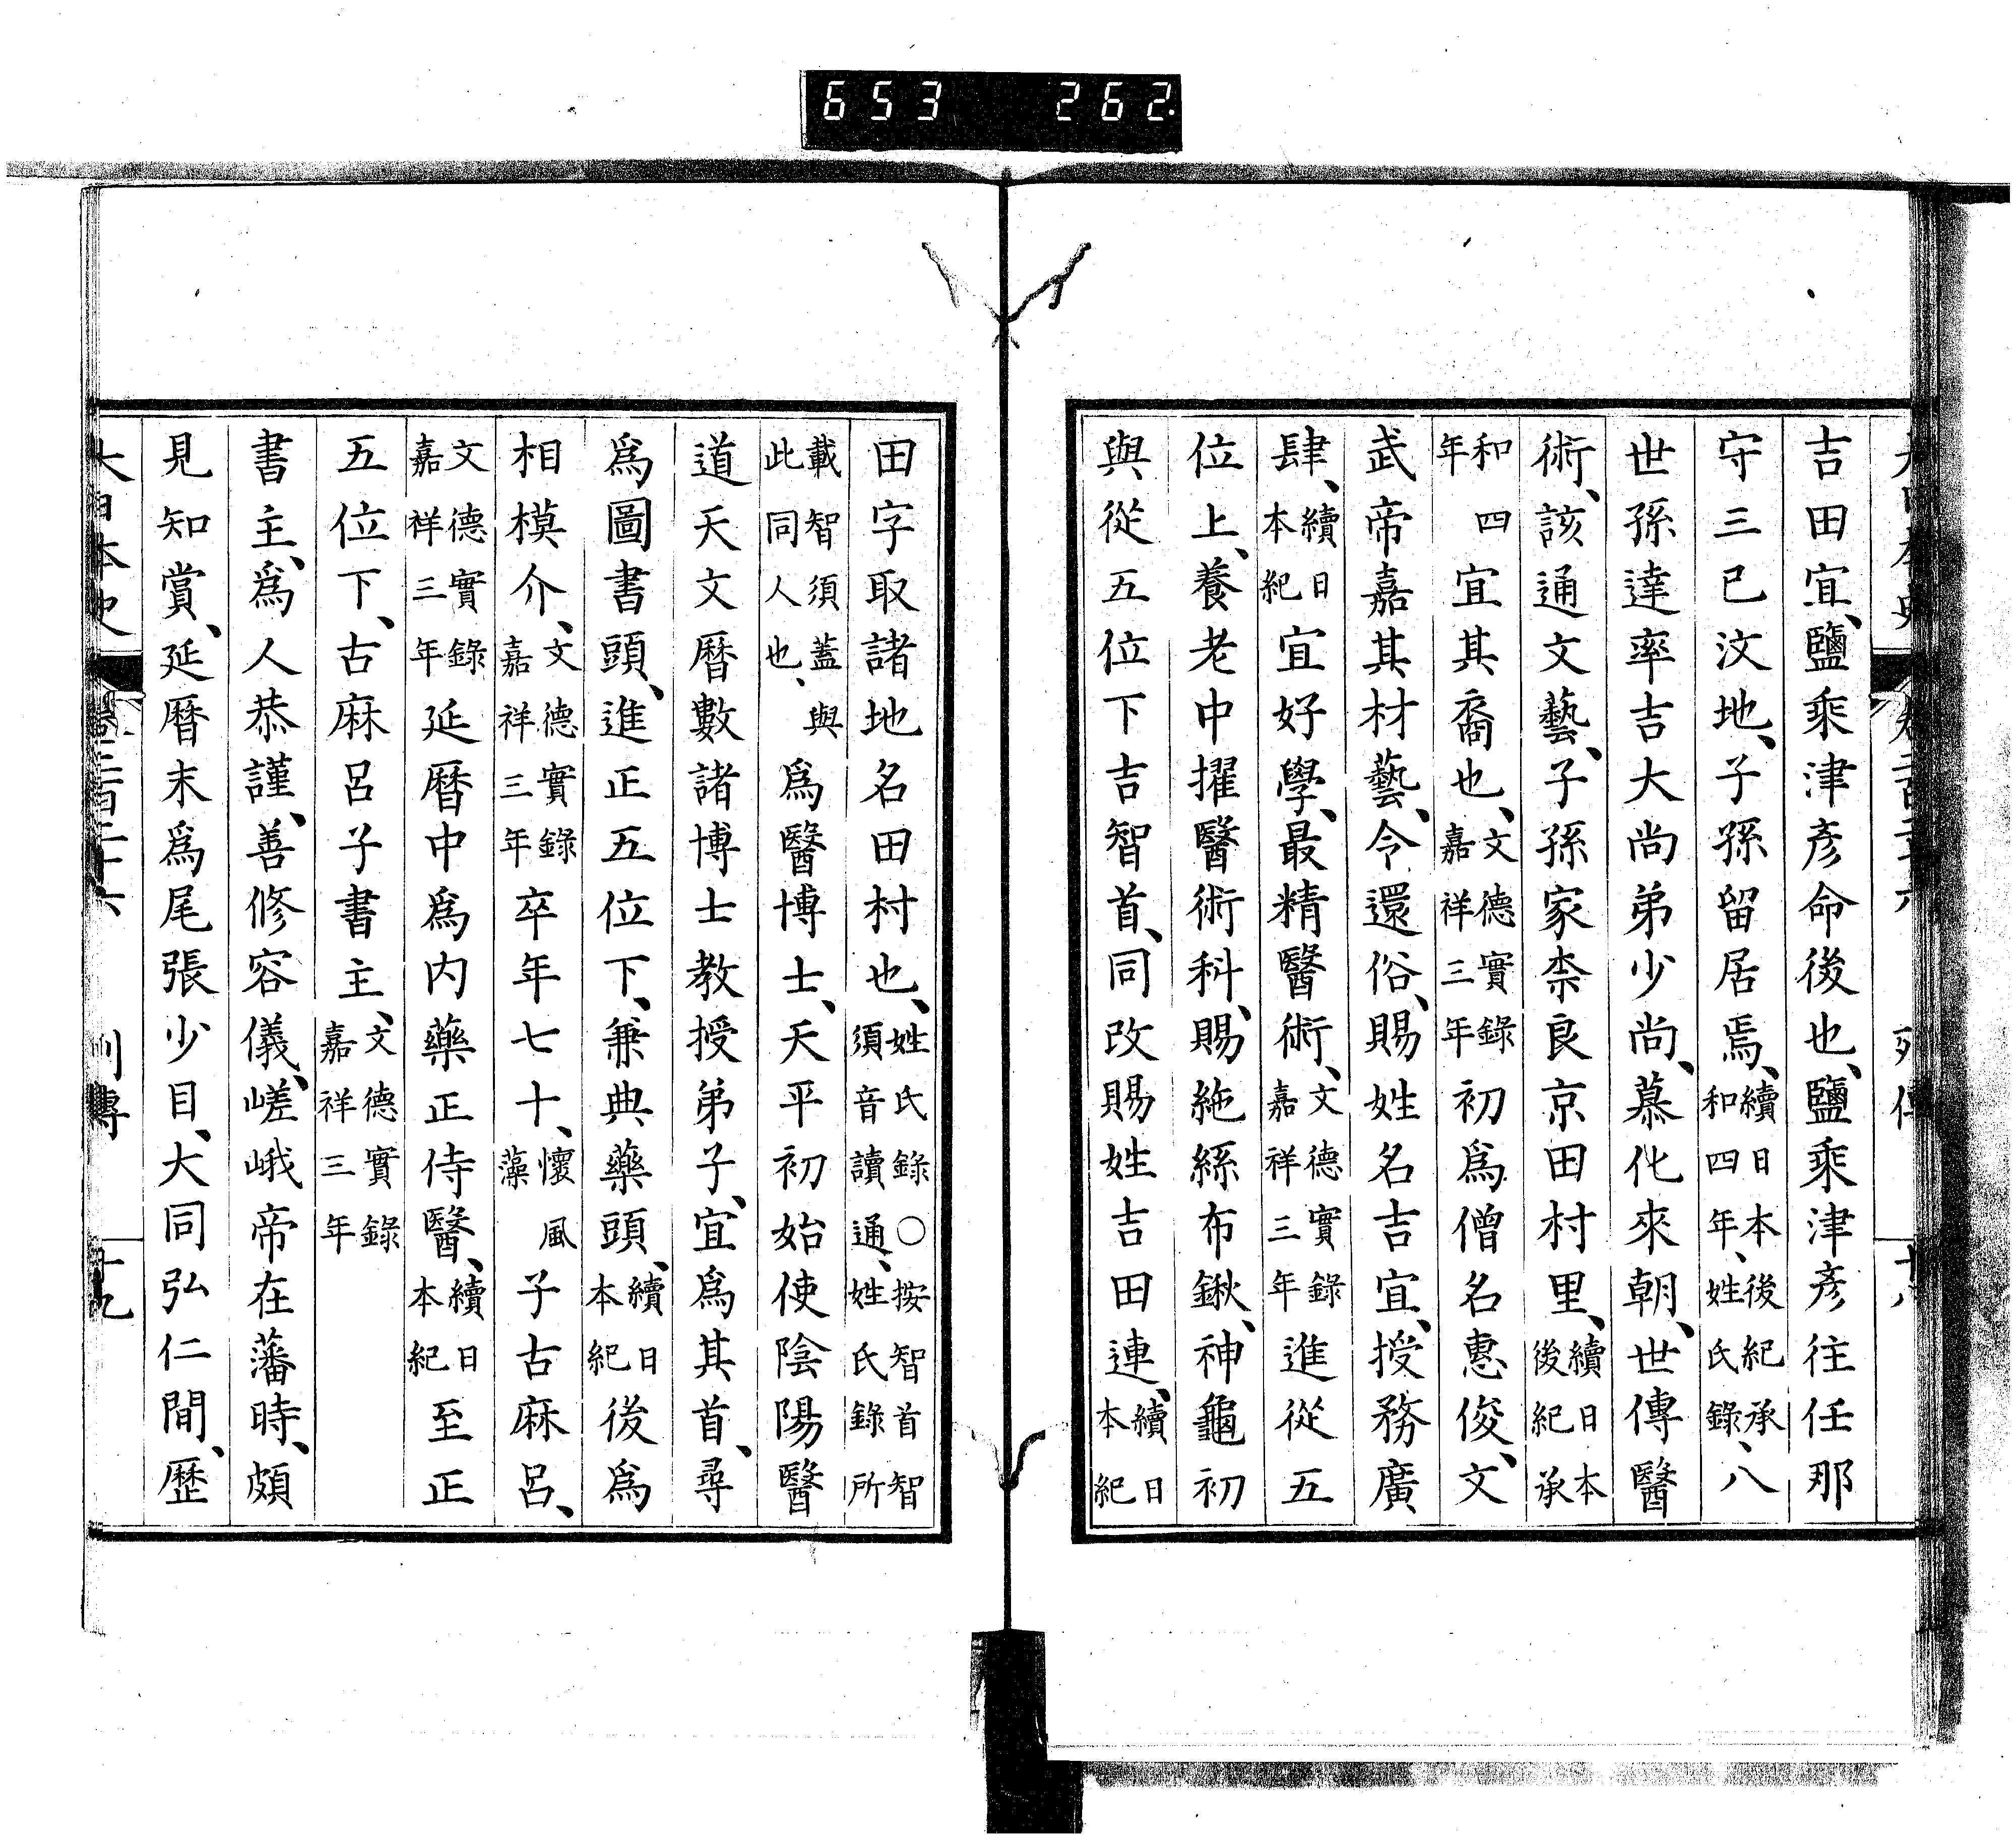 653 262
吉田宜、鹽乘津彥命後也、鹽乘津彥往任那
守三已汶地、子孫留居焉、續日本後紀承和四年、姓氏錄、八
世孫達率吉大尚弟少尚、慕化來朝、世傳醫
術、該通文藝、子孫家柰良京田村里、續日本後紀承
和四年宜其裔也、文德實錄嘉祥三年初爲僧名惠俊、文
武帝嘉其材藝、令還俗、賜姓名吉宜、授務廣
肆、續日本紀宜好學、最精醫術、文德實錄嘉祥三年進從五
位上、養老中擢醫術科、賜絁絲布鍬、神龜初
與從五位下吉智首、同改賜姓吉田連、續日本紀
田字取諸地名田村也、姓氏錄○按智首智須音讀通、姓氏錄所
載智須蓋與此同人也、爲醫博士、天平初始使陰陽醫
道天文曆數諸博士教授弟子、宜爲其首、尋
爲圖書頭、進正五位下、兼典藥頭、續日本紀後爲
相模介、文德實錄嘉祥三年卒年七十、懷風藻子古麻呂、
文德實錄嘉祥三年延曆中爲内藥正侍醫、續日本紀至正
五位下、古麻呂子書主、文德實錄嘉祥三年
書主、爲人恭謹、善修容儀、嵯峨帝在藩時、頗
見知賞、延曆末爲尾張少目、大同弘仁間、歷
大日本史 列傳 十九